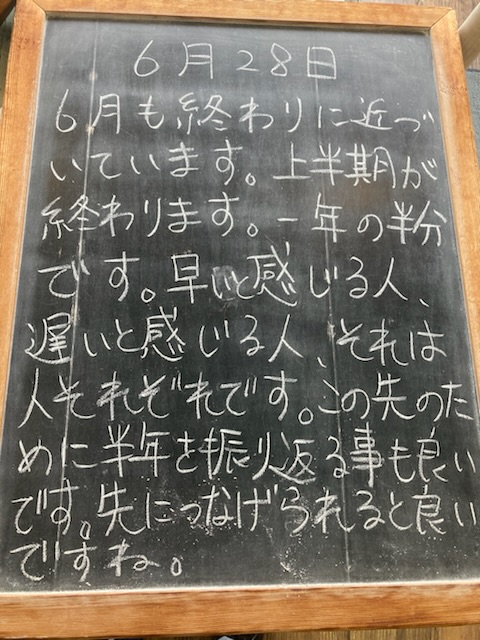 6月28日
6月も終わりに近づ
いています。上半期が
終わります。一年の半分
です。早いと感じる人、
遅いと感じる人、それは
人それぞれです。この先のた
めに半年を振り返る事も良い
です。先につなげられると良い
ですね。